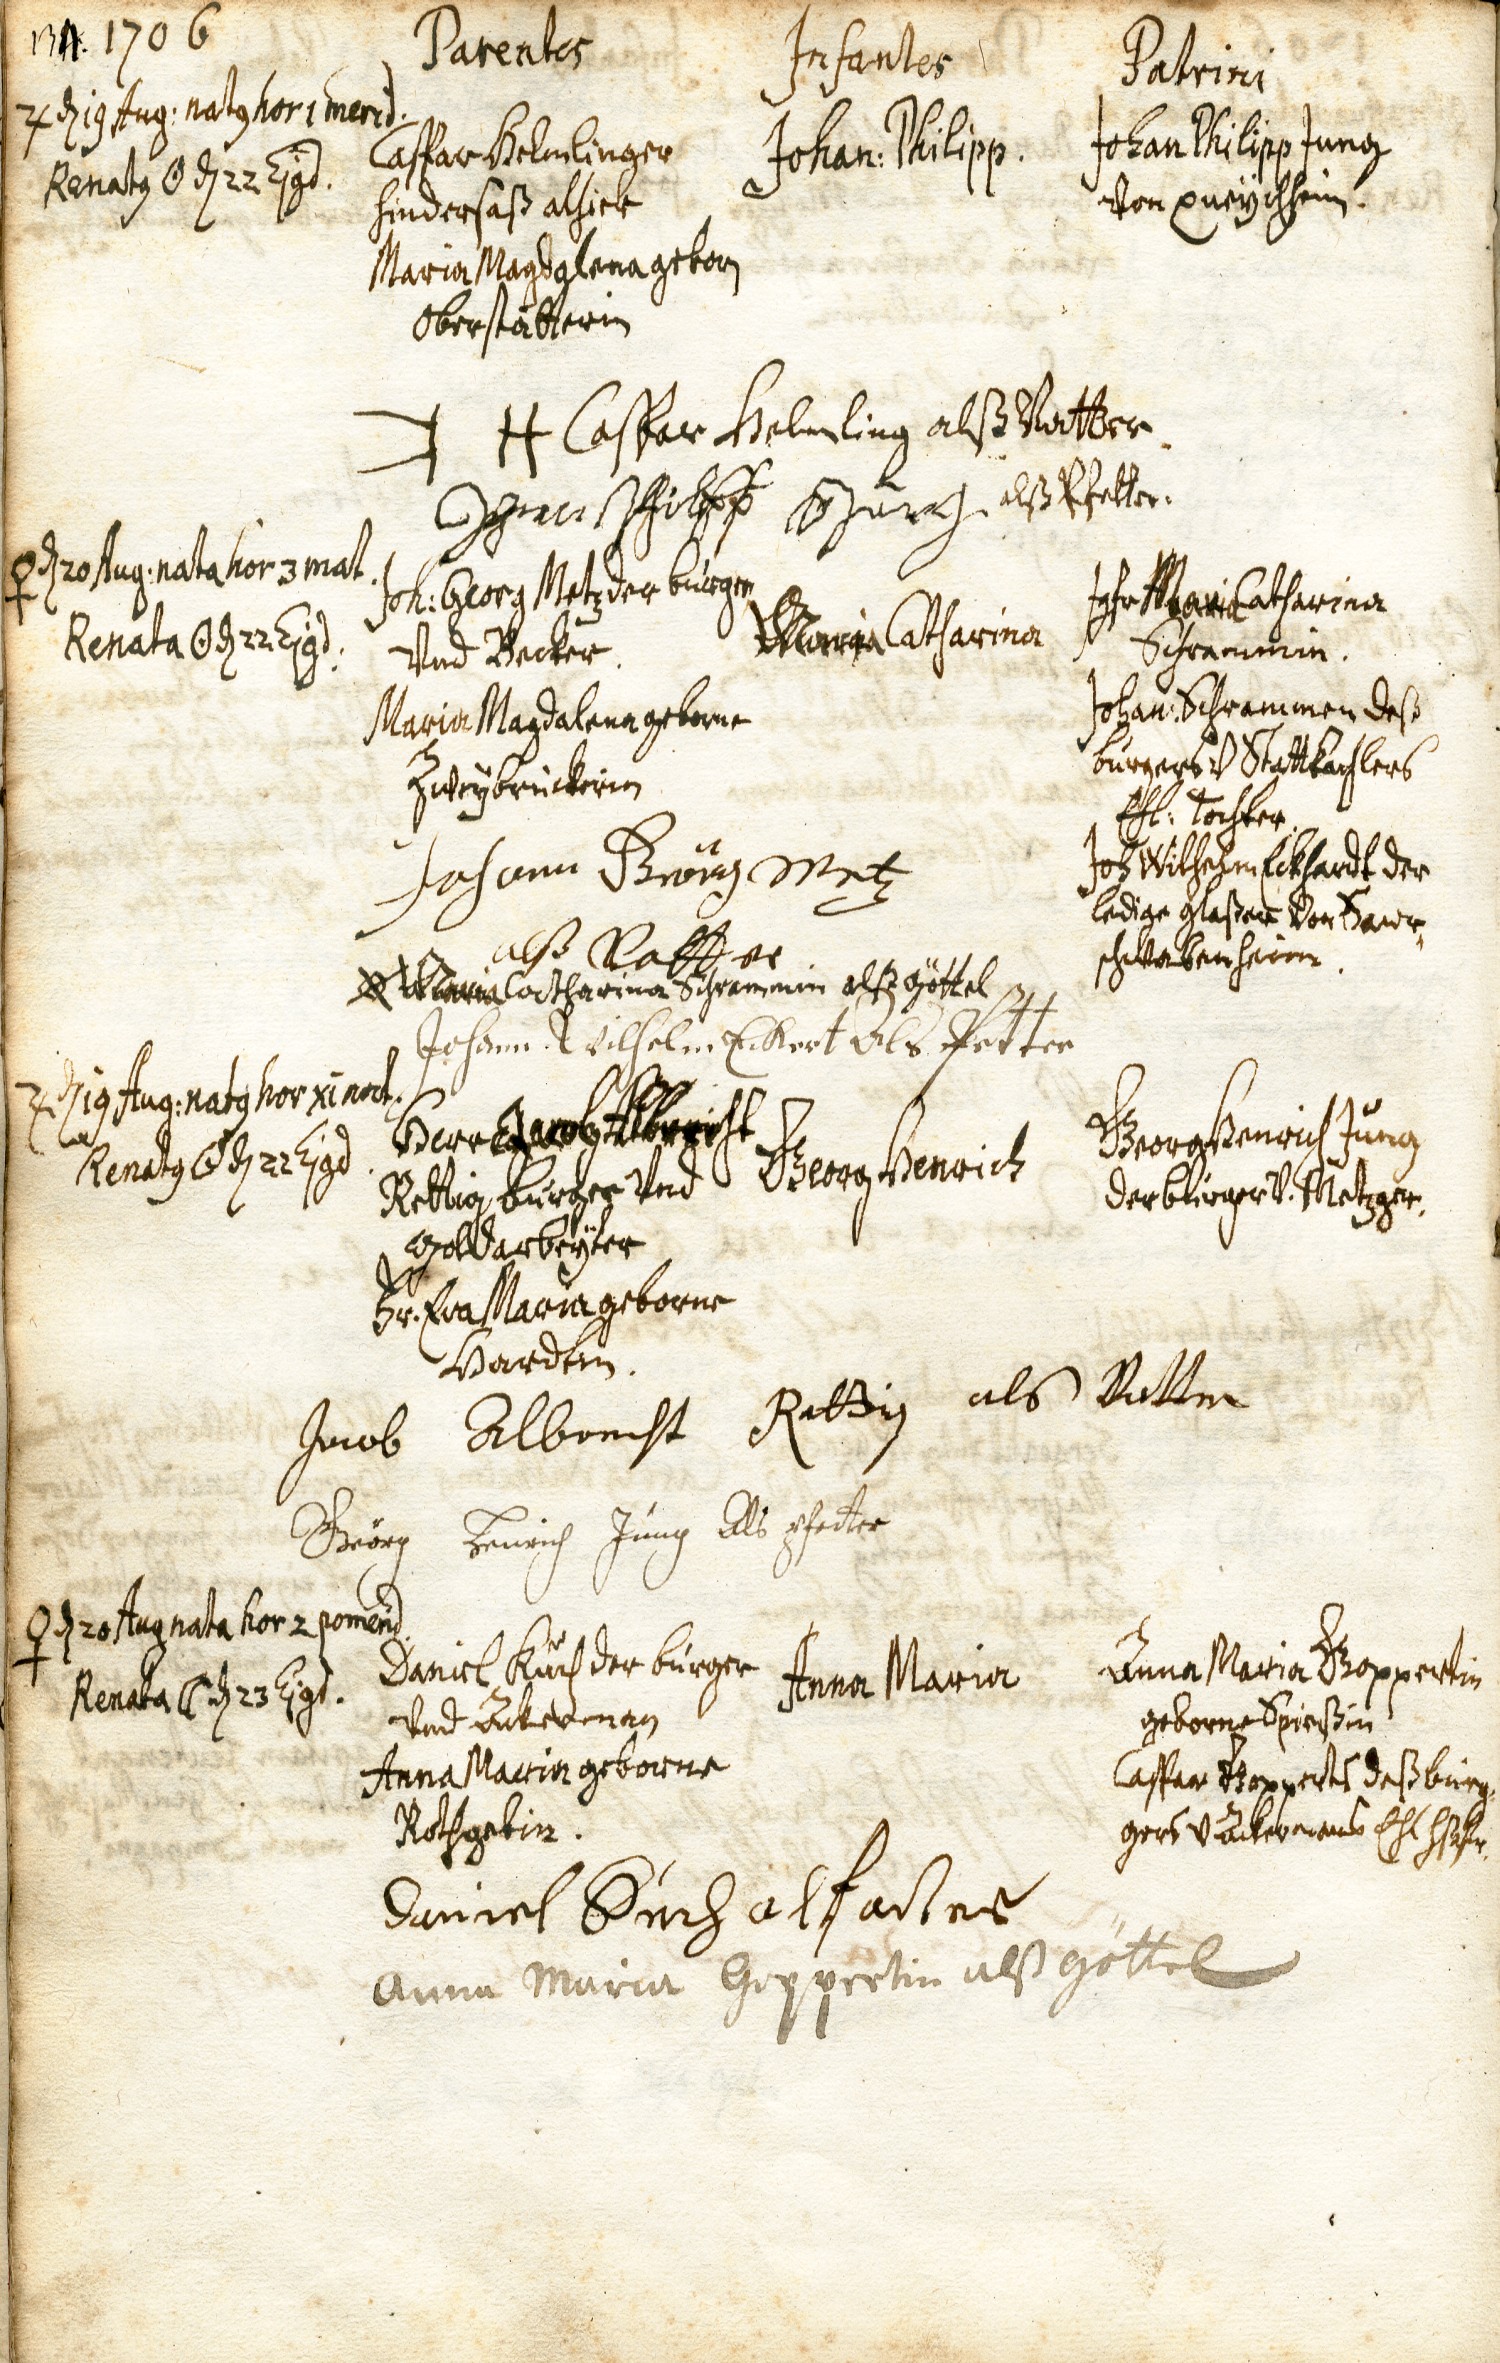 134. 1706
Parentes
Infantes
Patrini
♃ d 19 Aug: natꝰ hor 1 merid.
Renatꝰ ☉ d 22 Ejusd.
Caspar Helmlinger
hindersaß alhier
Maria Magdalena geborn
Oberstätterin
Johan: Philipp.
Johan Philipp Jung
von Queychheim.
H Caspar Helmling alß Vatter.
Johan Philipp Jung alß Pfetter.
♀ d 20 Aug: nata hor 3 mat.
Renata ☉ d 22 Ejusd.
Joh: Georg Metz der burger
Und Becker.
Maria Magdalena geborne
Zweybrückerin
Maria Catharina
Jgfr Maria Catharina
Schrammin.
Johan: Schrammen deß
burgers v Statt
Ehl: Tochter.
Joh Wilhelm Eckhardt der
ledige Glaßer von Sauer-
schwabenheim.
Johann Georg Metz
alß Vatter
Maria Catharina Schrammin alß Göttel
Johann Wilhelm Eckert als Petter
♃ d 19 Aug: natꝰ hor XI noct.
Renatꝰ ☉ d 22 Ejusd
Herr Jacob Albrecht
Rettig burger Und
Goldarbeyter
Fr. Eva Maria geborne
Hardtin.
Georg Henrich
Georg Henrich Jung
der burger v. Metzger.
Jacob Albrecht Rettig als Vatter
Georg Henrich Jung als pfetter
♀ d 20 Aug nata hor 2 pomerid.
Renata ☾ d 23 Ejusd.
Daniel Kuch der burger
Und Ackerman
Anna Maria geborne
Rothgebin.
Anna Maria
Anna Maria Goppertin
geborne Spießin
Caspar Gopperts deß bur-
gers v Ackermans Ehl Hßfr.
Daniel Kuch alß Vatter
Anna Maria Goppertin alß Göttel